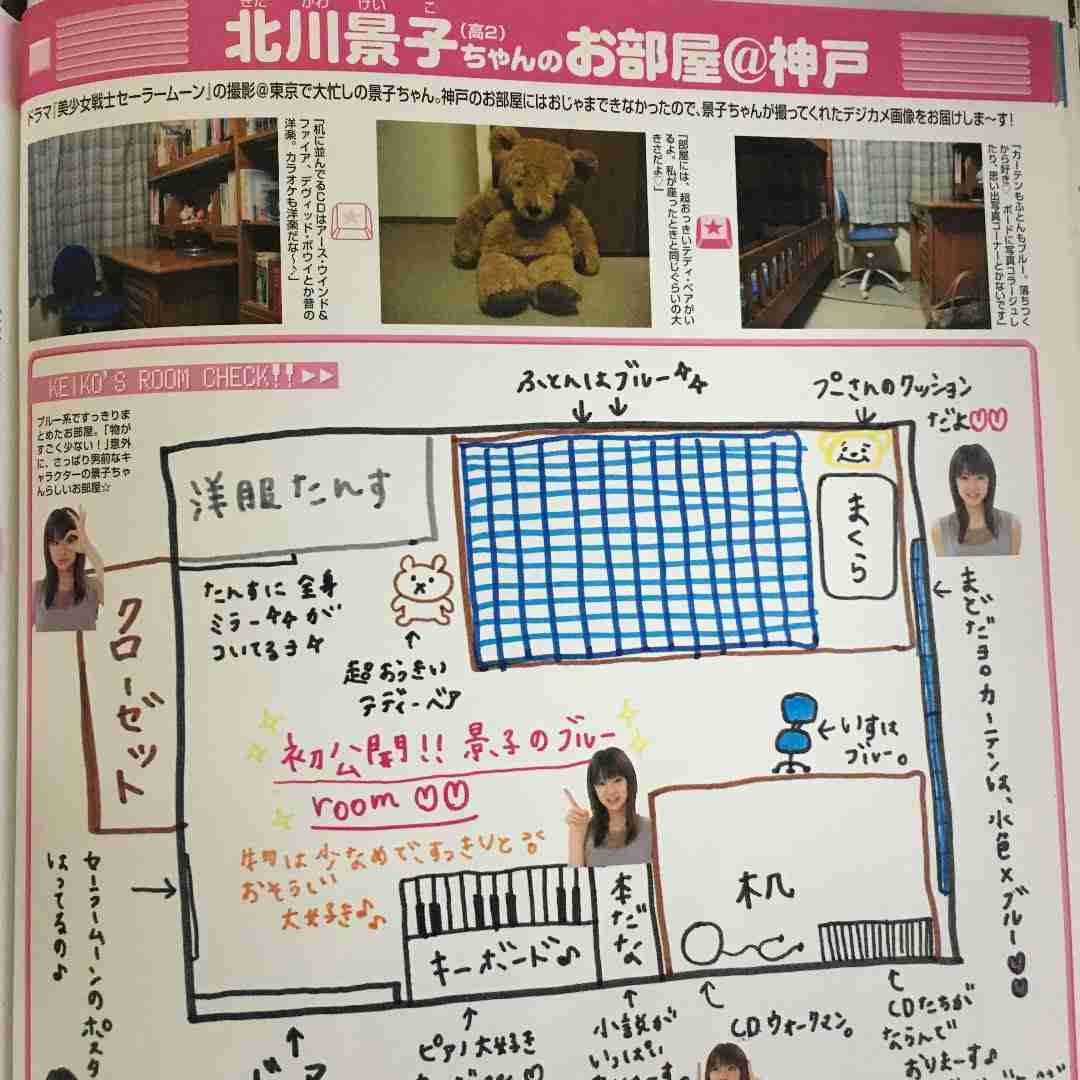 きた がわ けい こ
北川景子(高2)ちゃんのお部屋@神戸
ドラマ『美少女戦士セーラームーン』の撮影@東京で大忙しの景子ちゃん。神戸のお部屋にはおじゃまできなかったので、景子ちゃんが撮ってくれたデジカメ画像をお届けしま〜す!
「机に並んでるCDはアース・ウインド&
ファイア、デヴィッド・ボウイとか昔の
洋楽。カラオケも洋楽だな〜♪」
「部屋には、超おっきいテディ・ベアがい
るよ。私が座ったときと同じぐらいの大
きさだよ♡」
「カーテンもふとんもブルー。落ちつく
から好き♡ ボードに写真コラージュし
たり、思い出写真コーナーとかないです」
KEIKO'S ROOM CHECK!!▶▶
ブルー系ですっきりま
とめたお部屋。「物が
すごく少ない!」意外
に、さっぱり男前なキ
ャラクターの景子ちゃ
んらしいお部屋☆
ふとんはブルー
プーさんのクッション
だよ♡♡
洋服たんす
まくら
たんすに全身
ミラーが
ついてるヨ
超おっきい
テディーベア
クローゼット
まどだヨ。カーテンは、水色×ブルー♥♥
←いすは
ブルー。
初公開!! 景子のブルー
room♡♡
物は少なめで、すっきりと
おそうじ
大好き♪♪
セーラームーンのポスタ
はってるの♪
キーボード♪
本だな
机
ピアノ大好き
小説が
いっぱい
CDウォークマン。
CDたちが
ならんで
おりまーす♪